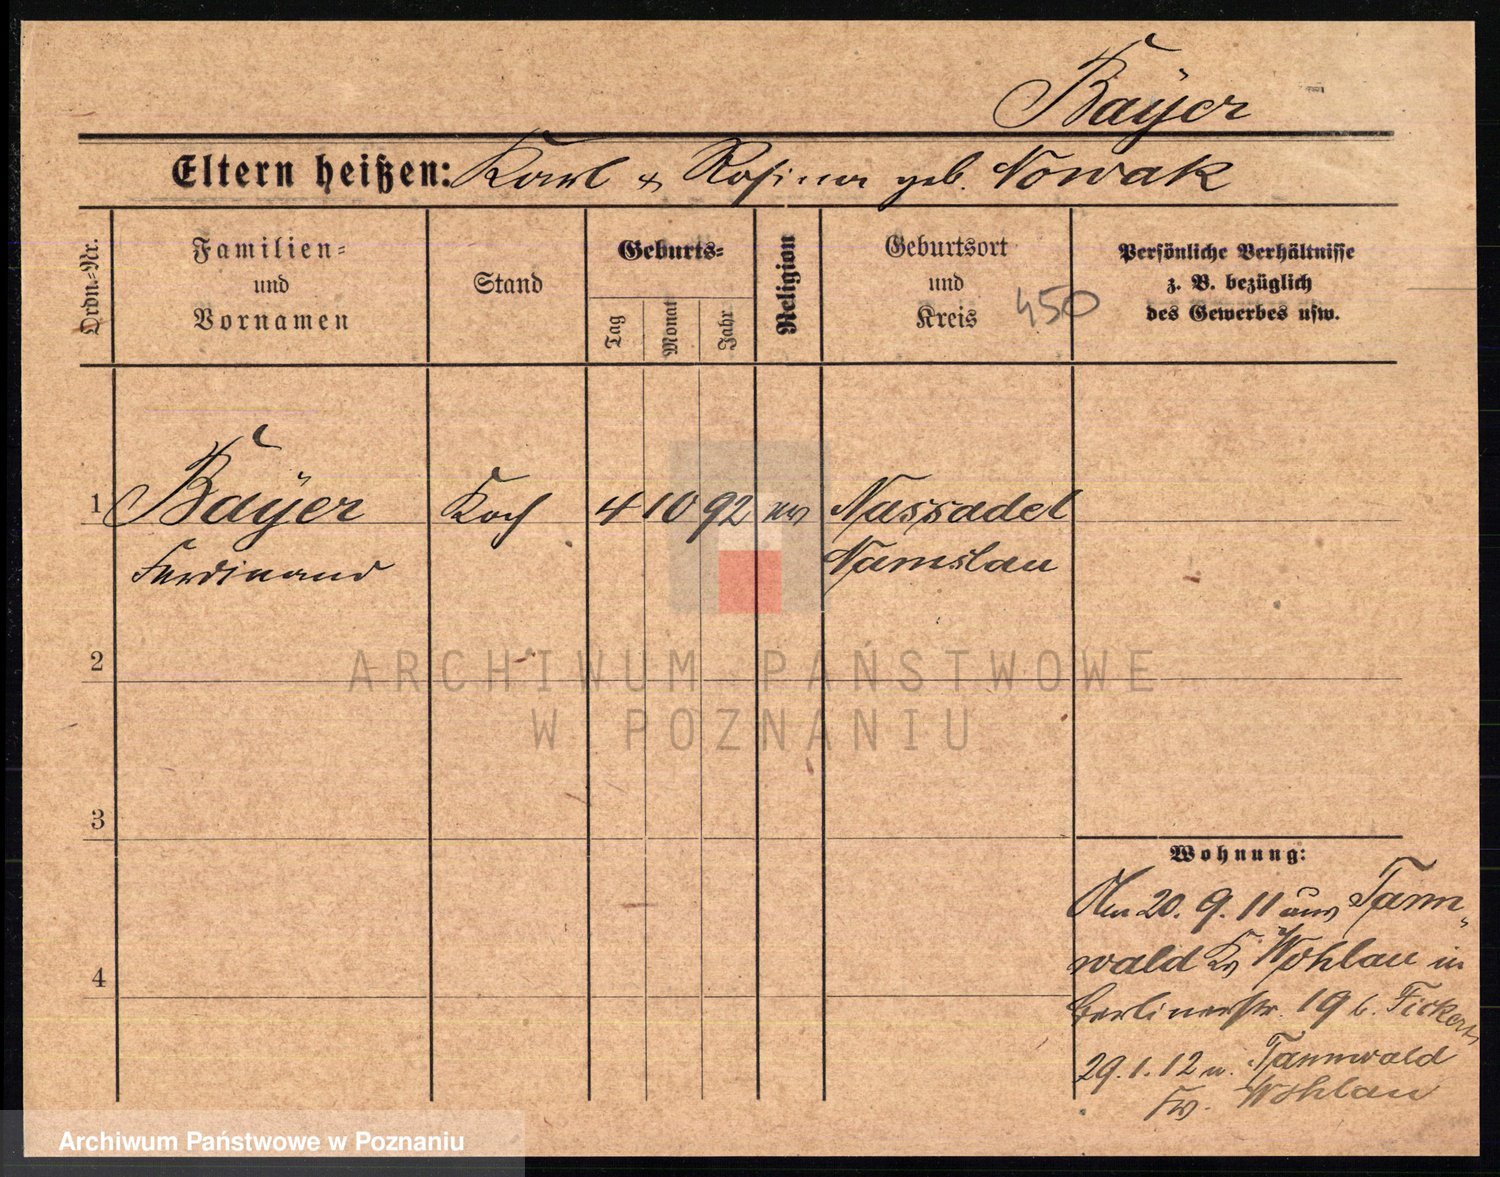 Bayer
Eltern heißen: Karl & Rosina geb. Nowak
Ordn.-Nr.
Familien-
und
Vornamen
Stand
Geburts-
Tag
Monat
Jahr
Religion
Geburtsort
und
Kreis
450
Persönliche Verhältnisse
z. B. bezüglich
des Gewerbes usw.
1 Bayer Koch 4 10 92 ev Nassadel
Ferdinand Namslau
2
ARCHIWUM PAŃSTWOWE
W POZNANIU
3
Wohnung:
20. 9. 11 aus Tann-
wald Kr Wohlau in
4
Berlinerstr. 19 b. Fickert
29. 1. 12 n. Tannwald
Wohlau
Archiwum Państwowe w Poznaniu